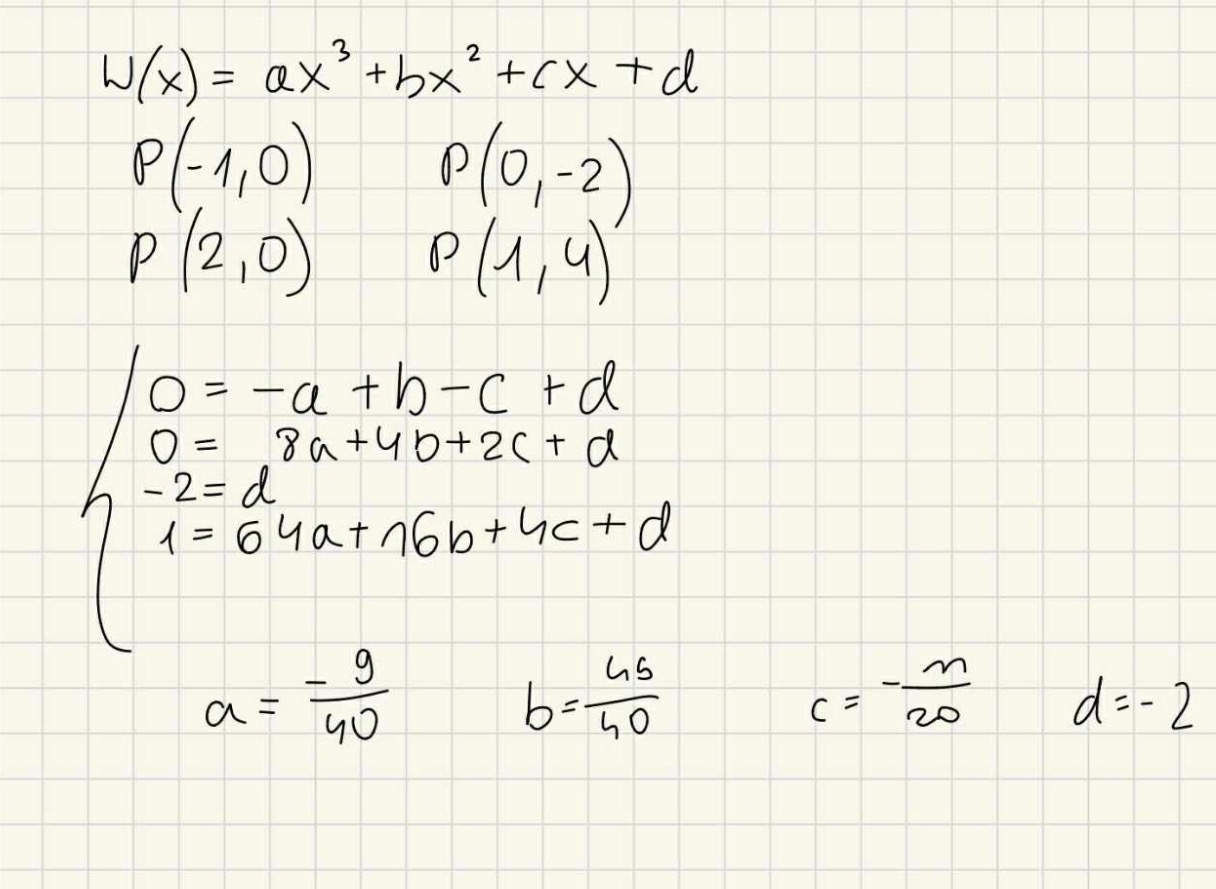 W(x) = ax³ + bx² + cx + d
P(-1,0) P(0,-2)
P(2,0) P(1,4)
0 = -a + b - c + d
0 = 8a + 4b + 2c + d
-2 = d
1 = 64a + 16b + 4c + d
a = -9/40 b = 49/40 c = -11/20 d = -2